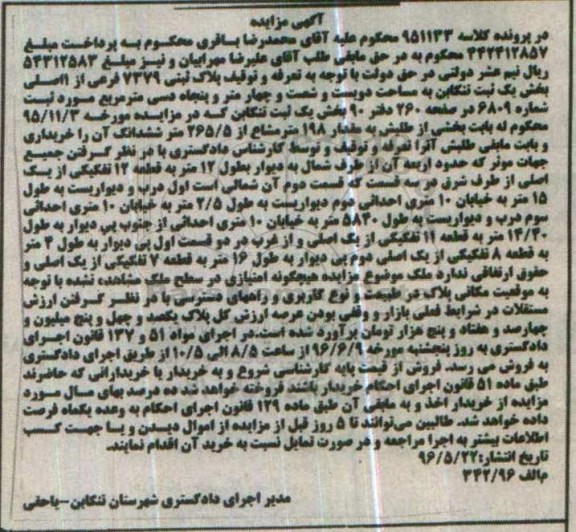 آگهی مزایده
در پرونده کلاسه 951133 محکوم علیه آقای محمدرضا باقری محکوم به پرداخت مبلغ
442412857 محکوم به در حق مابقی طلب آقای علیرضا مهرابیان و نیز مبلغ 54312583
ریال نیم عشر دولتی در حق دولت با توجه به تعرفه و توقیف پلاک ثبتی 7379 فرعی از 1اصلی
بخش یک ثبت تنکابن به مساحت دویست و شصت و چهار متر و پنجاه دسی مترمربع مورد ثبت
شماره 6809 در صفحه 260 دفتر 90 بخش یک ثبت تنکابن که در مزایده مورخه 95/11/3
محکوم له بابت بخشی از طلبش به مقدار 198 مترمشاع از 265/5 متر ششدانگ آن را خریداری
و بابت مابقی طلبش آنرا تعرفه و توقیف و توسط کارشناس دادگستری با در نظر گرفتن جمیع
جهات موثر که حدود اربعه آن از طرف شمال به دیوار بطول 12 متر به قطعه 12 تفکیکی از یک
اصلی از طرف شرق در سه قسمت که قسمت دوم آن شمالی است اول درب و دیواریست به طول
15 متر به خیابان 10 متری احداثی دوم دیواریست به طول 2/5 متر به خیابان 10 متری احداثی
سوم درب و دیواریست به طول 5840 متر به خیابان 10 متری احداثی از جنوب پی دیوار به طول
14/40 متر به قطعه 11 تفکیکی از یک اصلی و از غرب در دو قسمت اول پی دیوار به طول 4 متر
به قطعه 8 تفکیکی از یک اصلی دوم پی دیوار به طول 16 متر به قطعه 7 تفکیکی از یک اصلی و
حقوق ارتفاقی ندارد ملک موضوع مزایده هیچگونه امتیازی در سطح ملک مشاهده نشده با توجه
به موقعیت مکانی پلاک در طبیعت و نوع کاربری و راههای دسترسی با در نظر گرفتن ارزش
مستقلات در شرایط فعلی بازار و وقفی بودن عرصه ارزش کل پلاک یکصد و چهل و پنج میلیون و
چهارصد و هفتاد و پنج هزار تومان برآورد شده است.در اجرای مواد 51 و 137 قانون اجرای
دادگستری به روز پنجشنبه مورخه 96/6/9 از ساعت 8/5 الی 10/5 از طریق اجرای دادگستری
به فروش می رسد. فروش از قیمت پایه کارشناسی شروع و به خریدار یا خریدارانی که حاضرند
طبق ماده 51 قانون اجرای احکام خریدار باشند فروخته خواهد شد ده درصد بهای مال مورد
مزایده از خریدار اخذ و به مابقی آن طبق ماده 129 قانون اجرای احکام به وعده یکماه فرصت
داده خواهد شد. طالبین می‌توانند تا 5 روز قبل از مزایده از اموال دیدن و یا جهت کسب
اطلاعات بیشتر به اجرا مراجعه و در صورت تمایل نسبت به خرید آن اقدام نمایند.
تاریخ انتشار:96/5/22
م‌الف 342/96
مدیر اجرای دادگستری شهرستان تنکابن-یاحقی